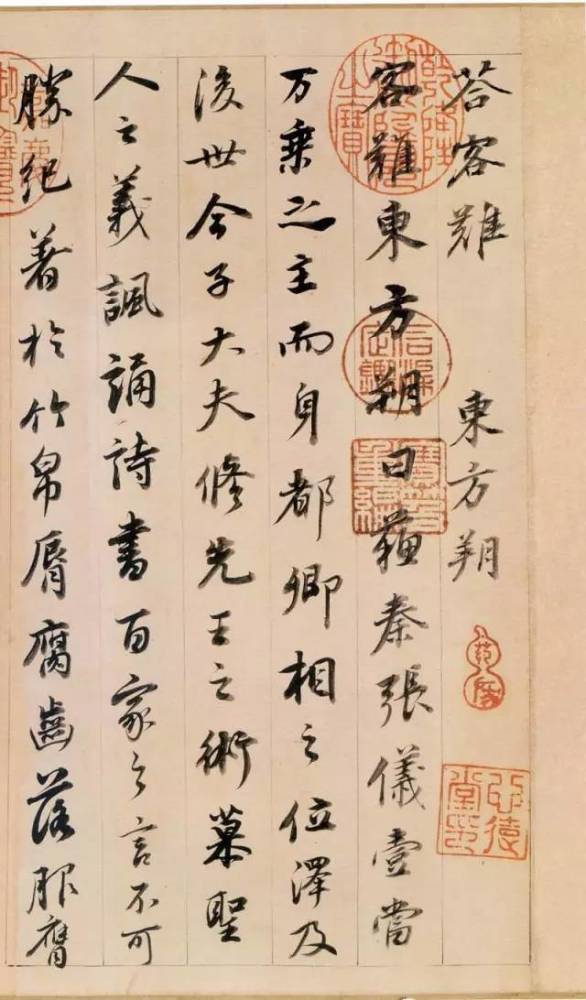 荅客難 東方朔
客難東方朔曰蘇秦張儀壹當
万乘之主而身都卿相之位澤及
後世今子大夫修先王之術慕聖
人之義諷誦詩書百家之言不可
勝紀著於竹帛脣腐齒落服膺